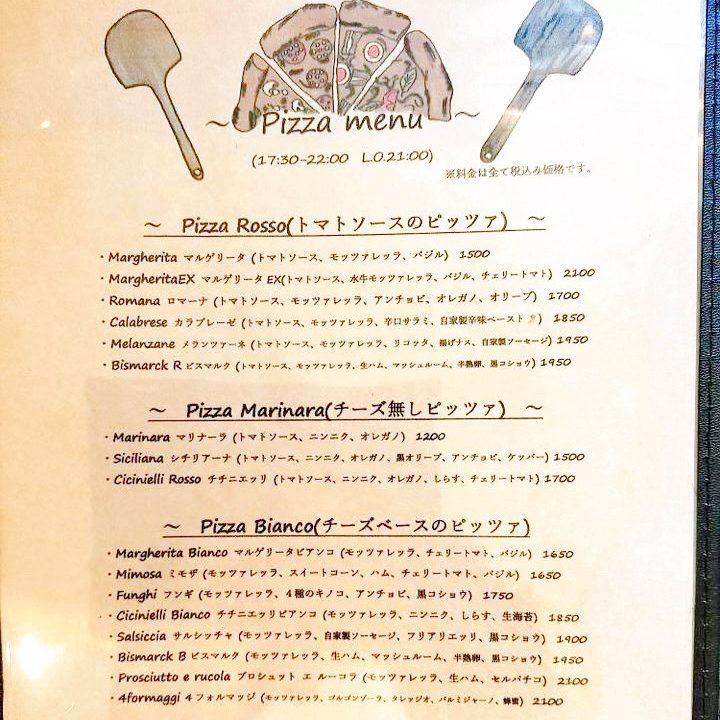 ~ Pizza menu ~
(17:30-22:00 L.O.21:00)
※料金は全て税込み価格です。
～ Pizza Rosso(トマトソースのピッツァ) ～
・Margherita マルゲリータ (トマトソース、モッツァレッラ、バジル) 1500
・MargheritaEX マルゲリータ EX(トマトソース、水牛モッツァレッラ、バジル、チェリートマト) 2100
・Romana ロマーナ (トマトソース、モッツァレッラ、アンチョビ、オレガノ、オリーブ) 1700
・Calabrese カラブレーゼ (トマトソース、モッツァレッラ、辛口サラミ、自家製辛味ペースト) 1850
・Melanzane メランツァーネ (トマトソース、モッツァレッラ、リコッタ、揚げナス、自家製ソーセージ) 1950
・Bismarck R ビスマルク (トマトソース、モッツァレッラ、生ハム、マッシュルーム、半熟卵、黒コショウ) 1950
～ Pizza Marinara(チーズ無しピッツァ) ～
・Marinara マリナーラ (トマトソース、ニンニク、オレガノ) 1200
・Siciliana シチリアーナ (トマトソース、ニンニク、オレガノ、黒オリーブ、アンチョビ、ケッパー) 1500
・Cicinielli Rosso チチニエッリ (トマトソース、ニンニク、オレガノ、しらす、チェリートマト) 1700
～ Pizza Bianco(チーズベースのピッツァ)
・Margherita Bianco マルゲリータビアンコ (モッツァレッラ、チェリートマト、バジル) 1650
・Mimosa ミモザ (モッツァレッラ、スイートコーン、ハム、チェリートマト、バジル) 1650
・Funghi フンギ (モッツァレッラ、４種のキノコ、アンチョビ、黒コショウ) 1750
・Cicinielli Bianco チチニエッリビアンコ (モッツァレッラ、ニンニク、しらす、生海苔) 1850
・Salsiccia サルシッチャ (モッツァレッラ、自家製ソーセージ、フリアリエッリ、黒コショウ) 1900
・Bismarck B ビスマルク (モッツァレッラ、生ハム、マッシュルーム、半熟卵、黒コショウ) 1950
・Prosciutto e rucola プロシュット エ ルーコラ (モッツァレッラ、生ハム、セルバチコ) 2100
・4formaggi ４フォルマッジ (モッツァレッラ、ゴルゴンゾーラ、タレッジオ、パルミジャーノ、蜂蜜) 2100